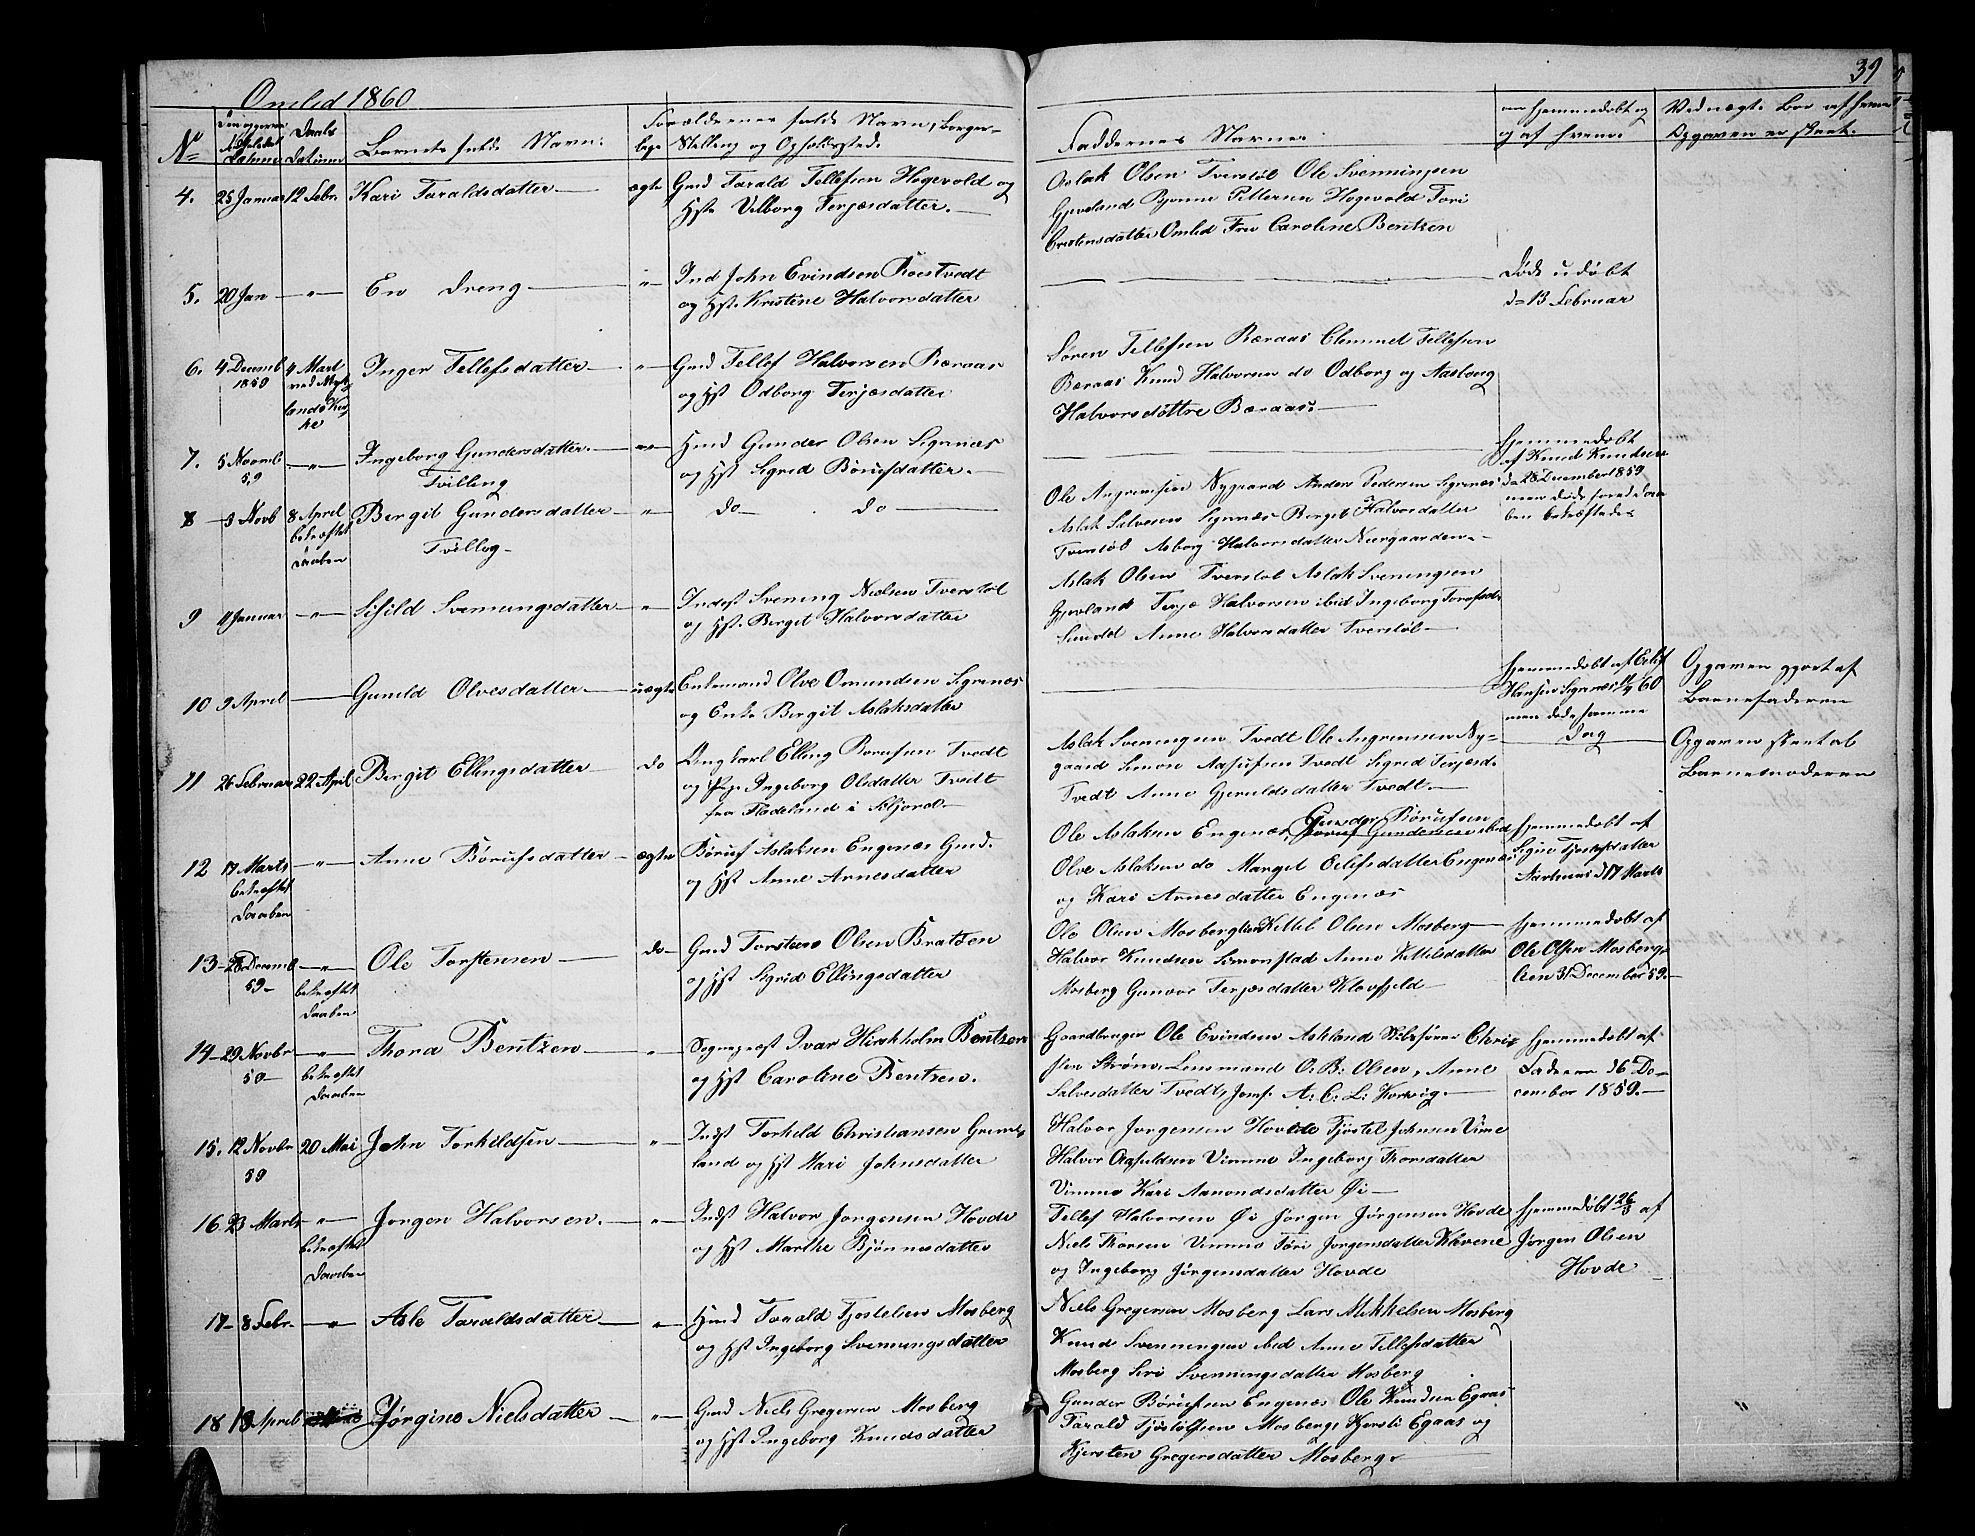 Omlid 1860
39
No
Daabs Datum
Barnets fulde Navn.
Forældrenes fulde Navn, Borger-
lige Stilling og Opholdssted.
Faddernes Navne.
om hjemmedøbt og
og af hvem.
4. 25 Januar 12 Febr. Kari Taraldsdatter ægte Gmd Tarald Tellefsen Hogevold og
Hst Vilborg Terjesdatter.
Aslak Olsen Tverstøl Ole Svenningsen
Gjevland Bjorne Pettersen Hogevold Tori
Cristensdatter Omlid Fru Caroline Bentzen
5. 20 Jan — " — En Dreng — " — Ind John Evindsen
og Hst. Kristine Halvorsdatter
Døde udøbt
d 13 Februar
6. 4 Decemb 1859 4 Mart
Inger Tellefsdatter — " — Gmd Tellef Halvorsen Bæraas
og Hst Odborg Terjesdatter
Søren Tellefsen Bæraas Clemmet Tellefsen
Bæraas Knud Halvorsen do Odborg og Aaslaug
Halvorsdøttre Bæraas.
7. 5 Novemb 59 — " — Ingeborg Gundersdatter. — " — Hmd Gunder Olsen Sigenæs
Tvilling
og Hst Sigrid Børufsdatter.
hjemmedøbt
af Knud Knudsen
d 28 December 1859
men døde forend Daa
ben bekræftedes
8 — 3 Novb 8 April Birgit Gundersdatter — " — do — do —
bekræftet
Daaben
Tvilling
Ole Nygaard Anders Pedersen Sigenæs
Aslak Salvesen Sigenæs Birgit Halvorsdatter
Tverstøl Asborg Halvorsdatter
9 4 Januar — " — Sifild Svenungsdatter — " — Indst Svening Nielsen Tverstøl
og Hst. Birgit Halvorsdatter
Aslak Olsen Tverstøl Aslak Sveningsen
Gjevland Terje Halvorsen ibid Ingeborg
Anne Halvorsdatter Tverstøl
10 9 April — Gunild Olvesdatter — uægte Enkemand Olve Omundsen Sigenæs
og Enke Birgit Aslaksdatter
hjemmedøbt af Eilif
Hansen Sigenæs 11/4 60
men døde samme
Dag
Opgaven gjort af
Barnefaderen
11 26 Februar 22 April Birgit Ellingsdatter — do Ungkarl Elling Borufsen Tvedt
og Pige Ingeborg Olsdatter Tvedt
fra Fladeland i
Aslak Sveningsen Tvedt Ole Ny-
gaard Simon Tvedt Sigrid Terjesd.
Tvedt Anne Gjeruldsdatter Tvedt.
Opgaven skeet af
Barnemoderen
12 17 Marts — " — Anne Børufsdatter — ægte Børuf Aslaksen Engenæs Gmd.
bekræftet
Daaben
og Hst Anne Arnesdatter
Gunder Børufsen
Ole Aslaksen Engenæs, Gundersen ibid
Olve Aslaksen do Margit Eilifsdatter Engenæs
og Kari Arnesdatter Engenæs
hjemmedøbt af
d 17 Marts
13 — 28 Decemb 59 — " — Ole Torstensen — do — Gmd Torsteen Olsen Bratsen
bekræftet
Daaben
og Hst Sigrid Ellingsdatter
Ole Olsen Mosberglien Kittel Olsen Mosberg
Halvor Knudsen Simonstad Anne Kittilsdatter
Mosberg Gunvor Terjesdatter Klovfjeld
hjemmedøbt af
Ole Olsen Mosberg-
lien 31 December 59.
14 — 29 Novbr 59 — " — Thora Bentzen — " — Sognepræst Ivar Hirchholm Bentzen
bekræftet
Daaben
og Hst Caroline Bentzen.
Gaardbruger Ole Evindsen Askland Kirkesanger Chri-
sten Strøm, Lensmand O. B. Olsen, Anne
Salvesdatter Tvedt, Jomf. A. C. L. Korvig.
hjemmedøbt af
Faderen 26 De-
cember 1859.
15. 12 Novbr 59 20 Mai John Torkildsen — " — Indst Torkild Christiansen
land og Hst Kari Johnsdatter
Halvor Jorgensen Hovde Tjostel Johnsen Vime
Halvor Vimme Ingeborg Thorsdatter
Vimme Kari Aanondsdatter Øi
16. 23 Marts — " — Jorgen Halvorsen. — " — Indst Halvor Jorgensen Hovde
bekræftet
Daaben
og Hst Marthe Bjønnesdatter
Tellef Halvorsen Øi Jørgen Jørgensen Hovde
Niels Thorsen Vimme Tori Jorgensdatter
og Ingeborg Jørgensdatter Hovde
hjemmedøbt 26/3 af
Jørgen Olsen
Hovde
17 — 8 Febr. — " — Asle Taraldsdatter — " — Hmd Tarald Tjostelsen Mosberg
og Hst Ingeborg Svenningsdatter
Niels Gregersen Mosberg Lars Mikkelsen Mosberg
Knud Svenningsen ibid Anne Tellefsdatter
Mosberg Siri Svenningsdatter Mosberg
18 13 April Jørgine Nielsdatter — " — Gmd Niels Gregersen Mosberg
og Hst Ingeborg Knudsdatter
Gunder Børufsen Engenæs Ole Knudsen Egaas
Tarald Tjøstolfsen Mosberg, Kjersti Egaas og
Kjersten Gregersdatter Mosberg.